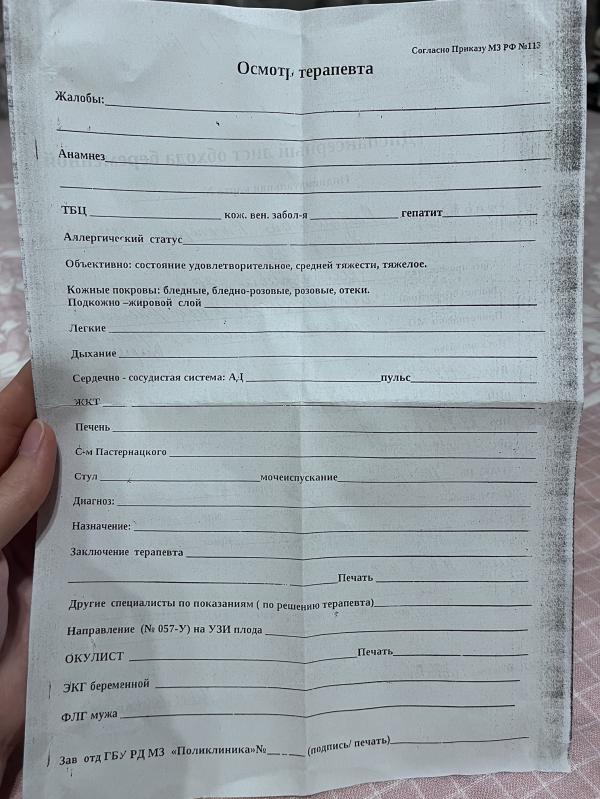 Согласно Приказу МЗ РФ №113
Осмотр терапевта
Жалобы:
Анамнез
ТБЦ кож. вен. забол-я гепатит
Аллергический статус
Объективно: состояние удовлетворительное, средней тяжести, тяжелое.
Кожные покровы: бледные, бледно-розовые, розовые, отеки.
Подкожно –жировой слой
Легкие
Дыхание
Сердечно - сосудистая система: АД пульс
ЖКТ
Печень
С-м Пастернацкого
Стул мочеиспускание
Диагноз:
Назначение:
Заключение терапевта
Печать
Другие специалисты по показаниям ( по решению терапевта)
Направление (№ 057-У) на УЗИ плода
ОКУЛИСТ Печать
ЭКГ беременной
ФЛГ мужа
Зав отд ГБУ РД МЗ «Поликлиника»№ (подпись/ печать)